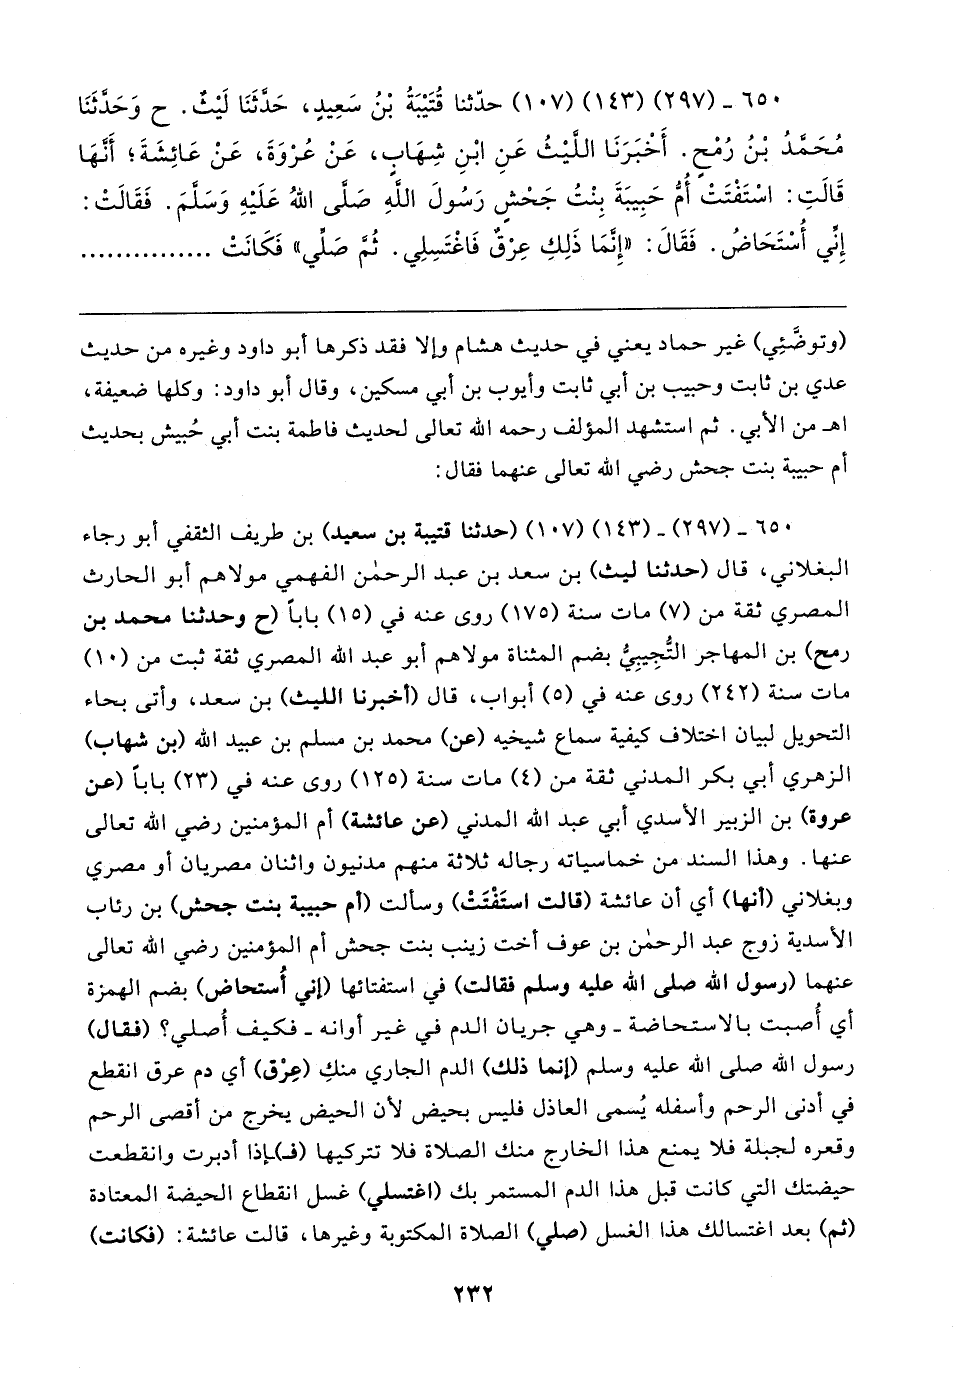 ٦٥٠ - (٢٩٧) (١٤٣) (١٠٧) حدّثنا قُتَيْبَةُ بْنُ سَعِيدٍ، حَدَّثَنَا لَيْثٌ. ح وَحَدَّثَنَا
مُحَمَّدُ بْنُ رُمْحٍ. أَخْبَرَنَا اللَّيْثُ عَنِ ابْنِ شِهَابٍ، عَنْ عُرْوَةَ، عَنْ عَائِشَةَ؛ أَنَّهَا
قَالَتِ: اسْتَفْتَتْ أُمُّ حَبِيبَةَ بِنْتُ جَحْشٍ رَسُولَ اللَّهِ صَلَّى اللهُ عَلَيْهِ وَسَلَّمَ. فَقَالَتْ:
إِنِّي أُسْتَحَاضُ. فَقَالَ: «إِنَّمَا ذَلِكِ عِرْقٌ فَاغْتَسِلِي. ثُمَّ صَلِّي» فَكَانَتْ ...............
(وتوضَّئِي) غير حماد يعني في حديث هشام وإلا فقد ذكرها أبو داود وغيره من حديث
عدي بن ثابت وحبيب بن أبي ثابت وأيوب بن أبي مسكين، وقال أبو داود: وكلها ضعيفة،
اهـ من الأبي. ثم استشهد المؤلف رحمه الله تعالى لحديث فاطمة بنت أبي حُبيش بحديث
أم حبيبة بنت جحش رضي الله تعالى عنهما فقال:
٦٥٠ - (٢٩٧) - (١٤٣) (١٠٧) (حدثنا قتيبة بن سعيد) بن طريف الثقفي أبو رجاء
البغلاني، قال (حدثنا ليث) بن سعد بن عبد الرحمٰن الفهمي مولاهم أبو الحارث
المصري ثقة من (٧) مات سنة (١٧٥) روى عنه في (١٥) باباً (ح وحدثنا محمد بن
رمح) بن المهاجر التُّجِيبِيُّ بضم المثناة مولاهم أبو عبد الله المصري ثقة ثبت من (١٠)
مات سنة (٢٤٢) روى عنه في (٥) أبواب، قال (أخبرنا الليث) بن سعد، وأتى بحاء
التحويل لبيان اختلاف كيفية سماع شيخيه (عن) محمد بن مسلم بن عبيد الله (بن شهاب)
الزهري أبي بكر المدني ثقة من (٤) مات سنة (١٢٥) روى عنه في (٢٣) باباً (عن
عروة) بن الزبير الأسدي أبي عبد الله المدني (عن عائشة) أم المؤمنين رضي الله تعالى
عنها. وهذا السند من خماسياته رجاله ثلاثة منهم مدنيون واثنان مصريان أو مصري
وبغلاني (أنها) أي أن عائشة (قالت استَفْتَتْ) وسألت (أم حبيبة بنت جحش) بن رئاب
الأسدية زوج عبد الرحمٰن بن عوف أخت زينب بنت جحش أم المؤمنين رضي الله تعالى
عنهما (رسول الله صلى الله عليه وسلم فقالت) في استفتائها (إني أُستحاض) بضم الهمزة
أي أُصبت بالاستحاضة - وهي جريان الدم في غير أوانه - فكيف أُصلي؟ (فقال)
رسول الله صلى الله عليه وسلم (إنما ذلك) الدم الجاري منكِ (عِرْق) أي دم عرق انقطع
في أدنى الرحم وأسفله يُسمى العاذل فليس بحيض لأن الحيض يخرج من أقصى الرحم
وقعره لجبلة فلا يمنع هذا الخارج منك الصلاة فلا تتركيها (فـ)ـإذا أدبرت وانقطعت
حيضتك التي كانت قبل هذا الدم المستمر بك (اغتسلي) غسل انقطاع الحيضة المعتادة
(ثم) بعد اغتسالك هذا الغسل (صلي) الصلاة المكتوبة وغيرها، قالت عائشة: (فكانت)
٢٣٢